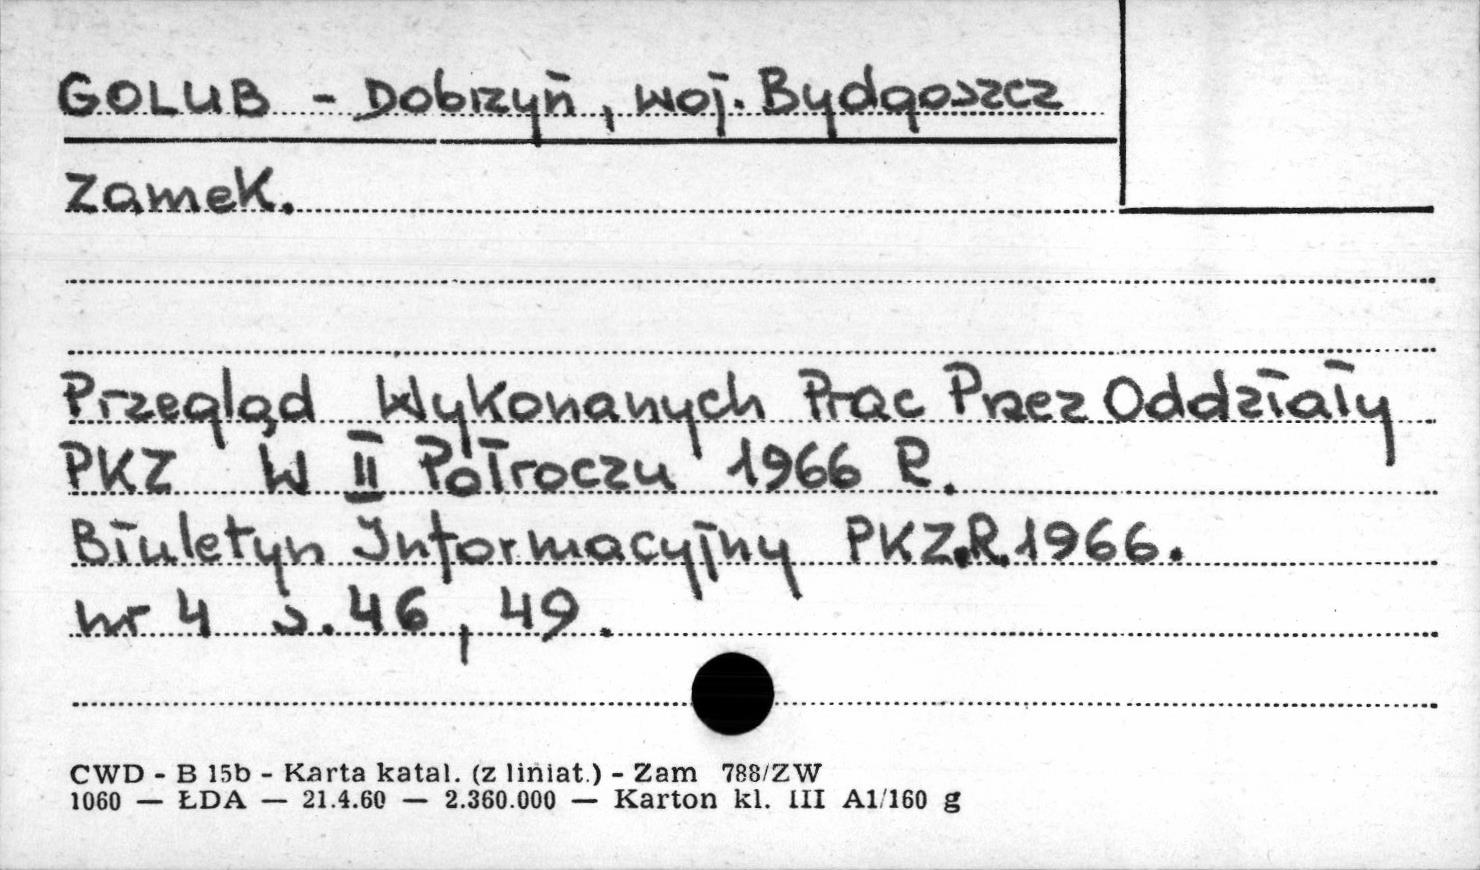 GOLUB - Dobrzyń, woj. Bydgoszcz
Zamek.
Przegląd Wykonanych Prac Przez Oddziały
PKZ W II Półroczu 1966 R.
Biuletyn Informacyjny PKZ.R.1966.
nr 4 s. 46, 49.
CWD - B 15b - Karta katal. (z liniat.) - Zam 788/ZW
1060 — ŁDA — 21.4.60 — 2.360.000 — Karton kl. III A1/160 g